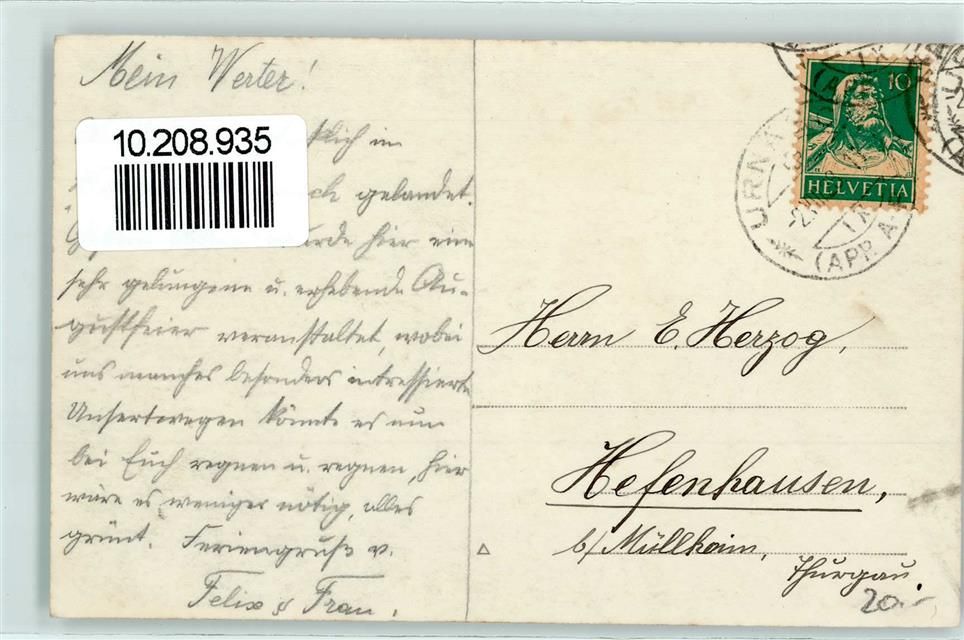 Mein Werter!
10.208.935
tlich im
ch gelandet.
urde hier eine
sehr gelungene u. erhebende Au-
gustfeier veranstaltet, wobei
uns manches besonders intressierte
Unsertwegen könnte es nun
bei Euch regnen u. regnen, hier
wäre es weniger nötig, alles
grünt. Feriengruß v.
Felix & Frau.
10
HELVETIA
URNÄ
(APP. A.
Herrn E. Herzog,
Hefenhausen,
b/ Müllheim,
Thurgau.
20.-